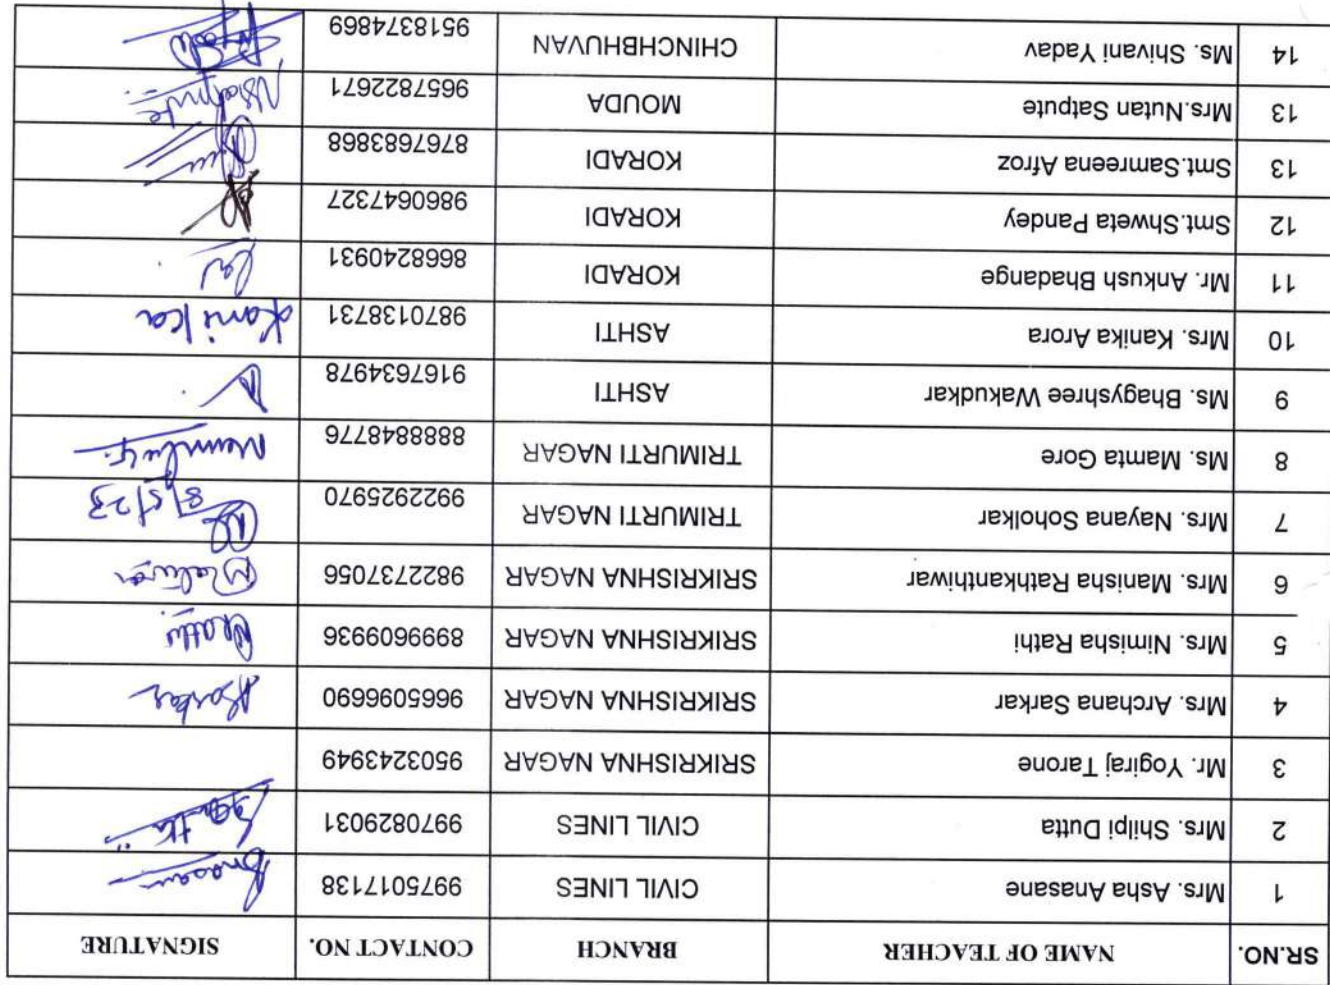 SR.NO. NAME OF TEACHER BRANCH CONTACT NO. SIGNATURE
1 Mrs. Asha Anasane CIVIL LINES 9975017138
2 Mrs. Shilpi Dutta CIVIL LINES 9970829031
3 Mr. Yogiraj Tarone SRIKRISHNA NAGAR 9503243949
4 Mrs. Archana Sarkar SRIKRISHNA NAGAR 9665096690
5 Mrs. Nimisha Rathi SRIKRISHNA NAGAR 8999609936
6 Mrs. Manisha Rathkanthiwar SRIKRISHNA NAGAR 9822737056
7 Mrs. Nayana Soholkar TRIMURTI NAGAR 9922925970 8/5/23
8 Ms. Mamta Gore TRIMURTI NAGAR 8888848776
9 Ms. Bhagyshree Wakudkar ASHTI 9167634978
10 Mrs. Kanika Arora ASHTI 9870138731 Kanika
11 Mr. Ankush Bhadange KORADI 8668240931
12 Smt.Shweta Pandey KORADI 9860647327
13 Smt.Samreena Afroz KORADI 8767683868
13 Mrs.Nutan Satpute MOUDA 9657822671
14 Ms. Shivani Yadav CHINCHBHUVAN 9518374869